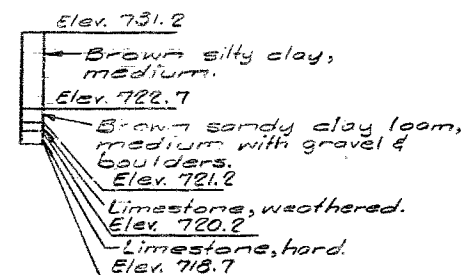 Elev. 731.2
Brown silty clay,
medium.
Elev. 722.7
Brown sandy clay loam,
medium with gravel &
boulders.
Elev. 721.2
Limestone, weathered.
Elev. 720.2
Limestone, hard.
Elev. 718.7